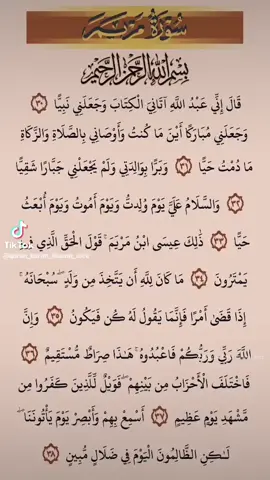 سُورَةُ مَرْيَمَ
بِسْمِ اللَّهِ الرَّحْمَٰنِ الرَّحِيمِ
قَالَ إِنِّي عَبْدُ اللَّهِ آتَانِيَ الْكِتَابَ وَجَعَلَنِي نَبِيًّا ﴿٣٠﴾
وَجَعَلَنِي مُبَارَكًا أَيْنَ مَا كُنتُ وَأَوْصَانِي بِالصَّلَاةِ وَالزَّكَاةِ
مَا دُمْتُ حَيًّا ﴿٣١﴾ وَبَرًّا بِوَالِدَتِي وَلَمْ يَجْعَلْنِي جَبَّارًا شَقِيًّا
﴿٣٢﴾ وَالسَّلَامُ عَلَيَّ يَوْمَ وُلِدتُّ وَيَوْمَ أَمُوتُ وَيَوْمَ أُبْعَثُ
حَيًّا ﴿٣٣﴾ ذَٰلِكَ عِيسَى ابْنُ مَرْيَمَ ۚ قَوْلَ الْحَقِّ الَّذِي فِيهِ
يَمْتَرُونَ ﴿٣٤﴾ مَا كَانَ لِلَّهِ أَن يَتَّخِذَ مِن وَلَدٍ ۖ سُبْحَانَهُ ۚ
إِذَا قَضَىٰ أَمْرًا فَإِنَّمَا يَقُولُ لَهُ كُن فَيَكُونُ ﴿٣٥﴾ وَإِنَّ
اللَّهَ رَبِّي وَرَبُّكُمْ فَاعْبُدُوهُ ۚ هَٰذَا صِرَاطٌ مُّسْتَقِيمٌ ﴿٣٦﴾
فَاخْتَلَفَ الْأَحْزَابُ مِن بَيْنِهِمْ ۖ فَوَيْلٌ لِّلَّذِينَ كَفَرُوا مِن
مَّشْهَدِ يَوْمٍ عَظِيمٍ ﴿٣٧﴾ أَسْمِعْ بِهِمْ وَأَبْصِرْ يَوْمَ يَأْتُونَنَا ۖ
لَٰكِنِ الظَّالِمُونَ الْيَوْمَ فِي ضَلَالٍ مُّبِينٍ ﴿٣٨﴾
TikTok